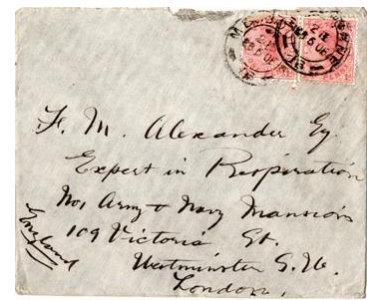 F. M. Alexander Esq.
Expert in Respiration
No 1 Army & Navy Mansions
109 Victoria St.
Westminster S.W.
London.
England